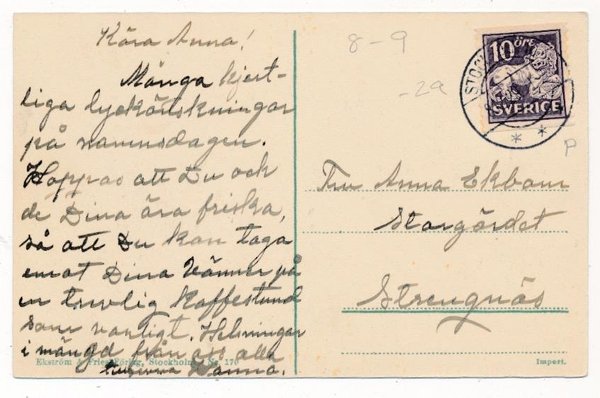 Kära Anna!
Många hjert-
liga lyckönskningar
på namnsdagen.
Hoppas att Du och
de Dina ära friska,
så att Du kan taga
emot Dina Vänner på
en trevlig Kaffestund
som vanligt. Helsningar
i mängd från oss alla
Hanna.
8-9
-29
10 ÖRE
SVERIGE
STOC
P
Fru Anna Ekbom
Storgärdet
Strengnäs
Ekström & Fries Förlag, Stockholm. Nr. 170
Import.